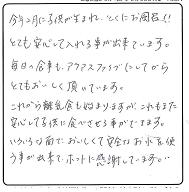 今年2月に子供が生まれ、とくにお風呂!!
とても安心して入れる事が出来ています。
毎日の食事も、アクアスファイブにしてから
とてもおいしく頂いています。
これから離乳食も始まりますが、これもまた
安心して子供に食べさせる事ができます。
いろいろな面で、おいしくて安全なお水を使
う事が出来て、ホントに感謝しています…